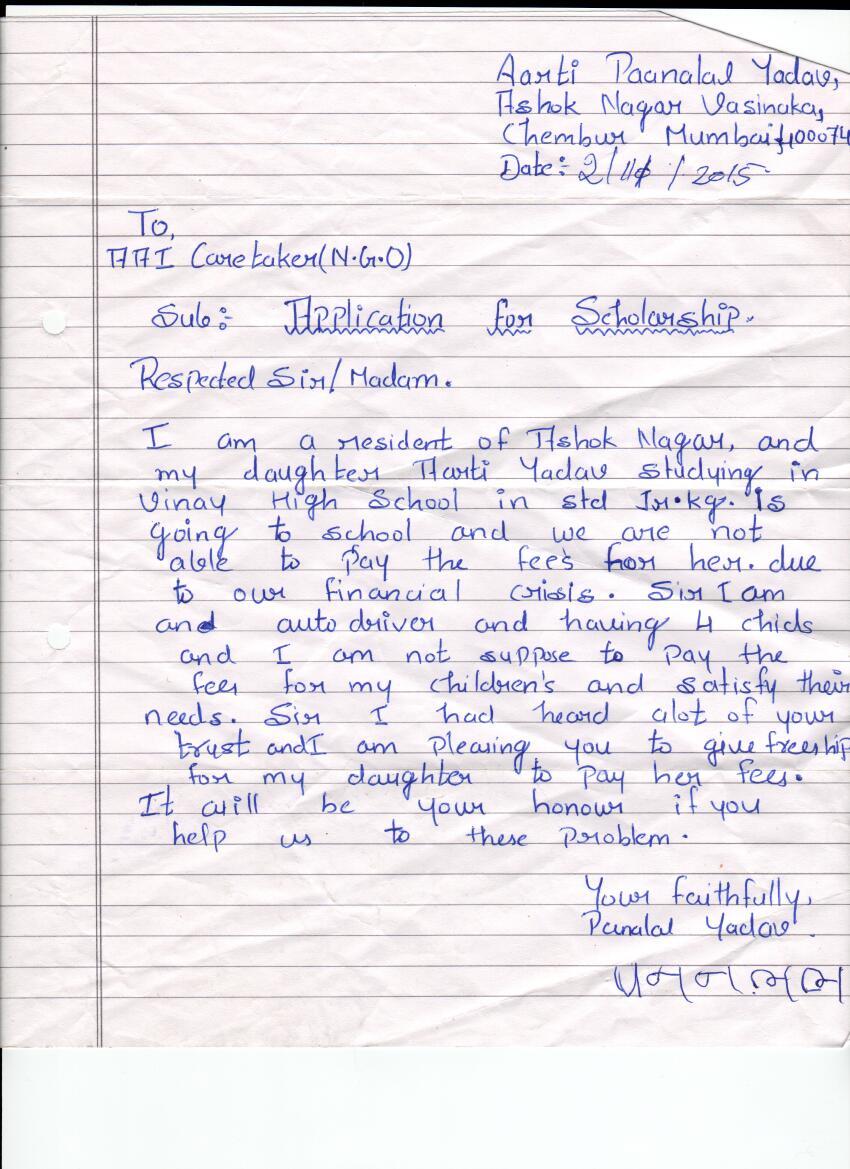 Aarti Paanalal Yadav,
Ashok Nagar Vasinaka,
Chembur Mumbai 400074
Date:- 2/11/2015
To,
AAI Caretaker(N.G.O)
Sub:- Application for Scholarship.
Respected Sir/Madam.
I am a resident of Ashok Nagar, and
my daughter Aarti Yadav studying in
Vinay High School in std Jr.kg. is
going to school and we are not
able to pay the fees for her. due
to our financial crisis. Sir I am
and auto driver and having 4 chids
and I am not suppose to pay the
fees for my children's and satisfy their
needs. Sir I had heard alot of your
trust and I am pleasing you to give freeship
for my daughter to pay her fees.
It will be your honour if you
help us to these problem.
Your faithfully,
Panalal Yadav.